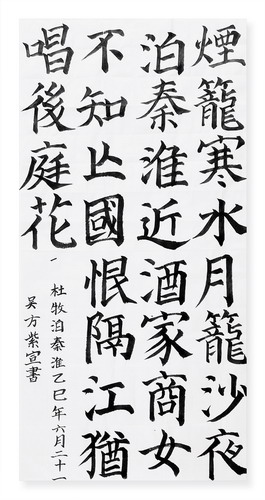 煙籠寒水月籠沙夜
泊秦淮近酒家商女
不知亾國恨隔江猶
唱後庭花
杜牧泊秦淮乙巳年六月二十一
吳方紫宣書